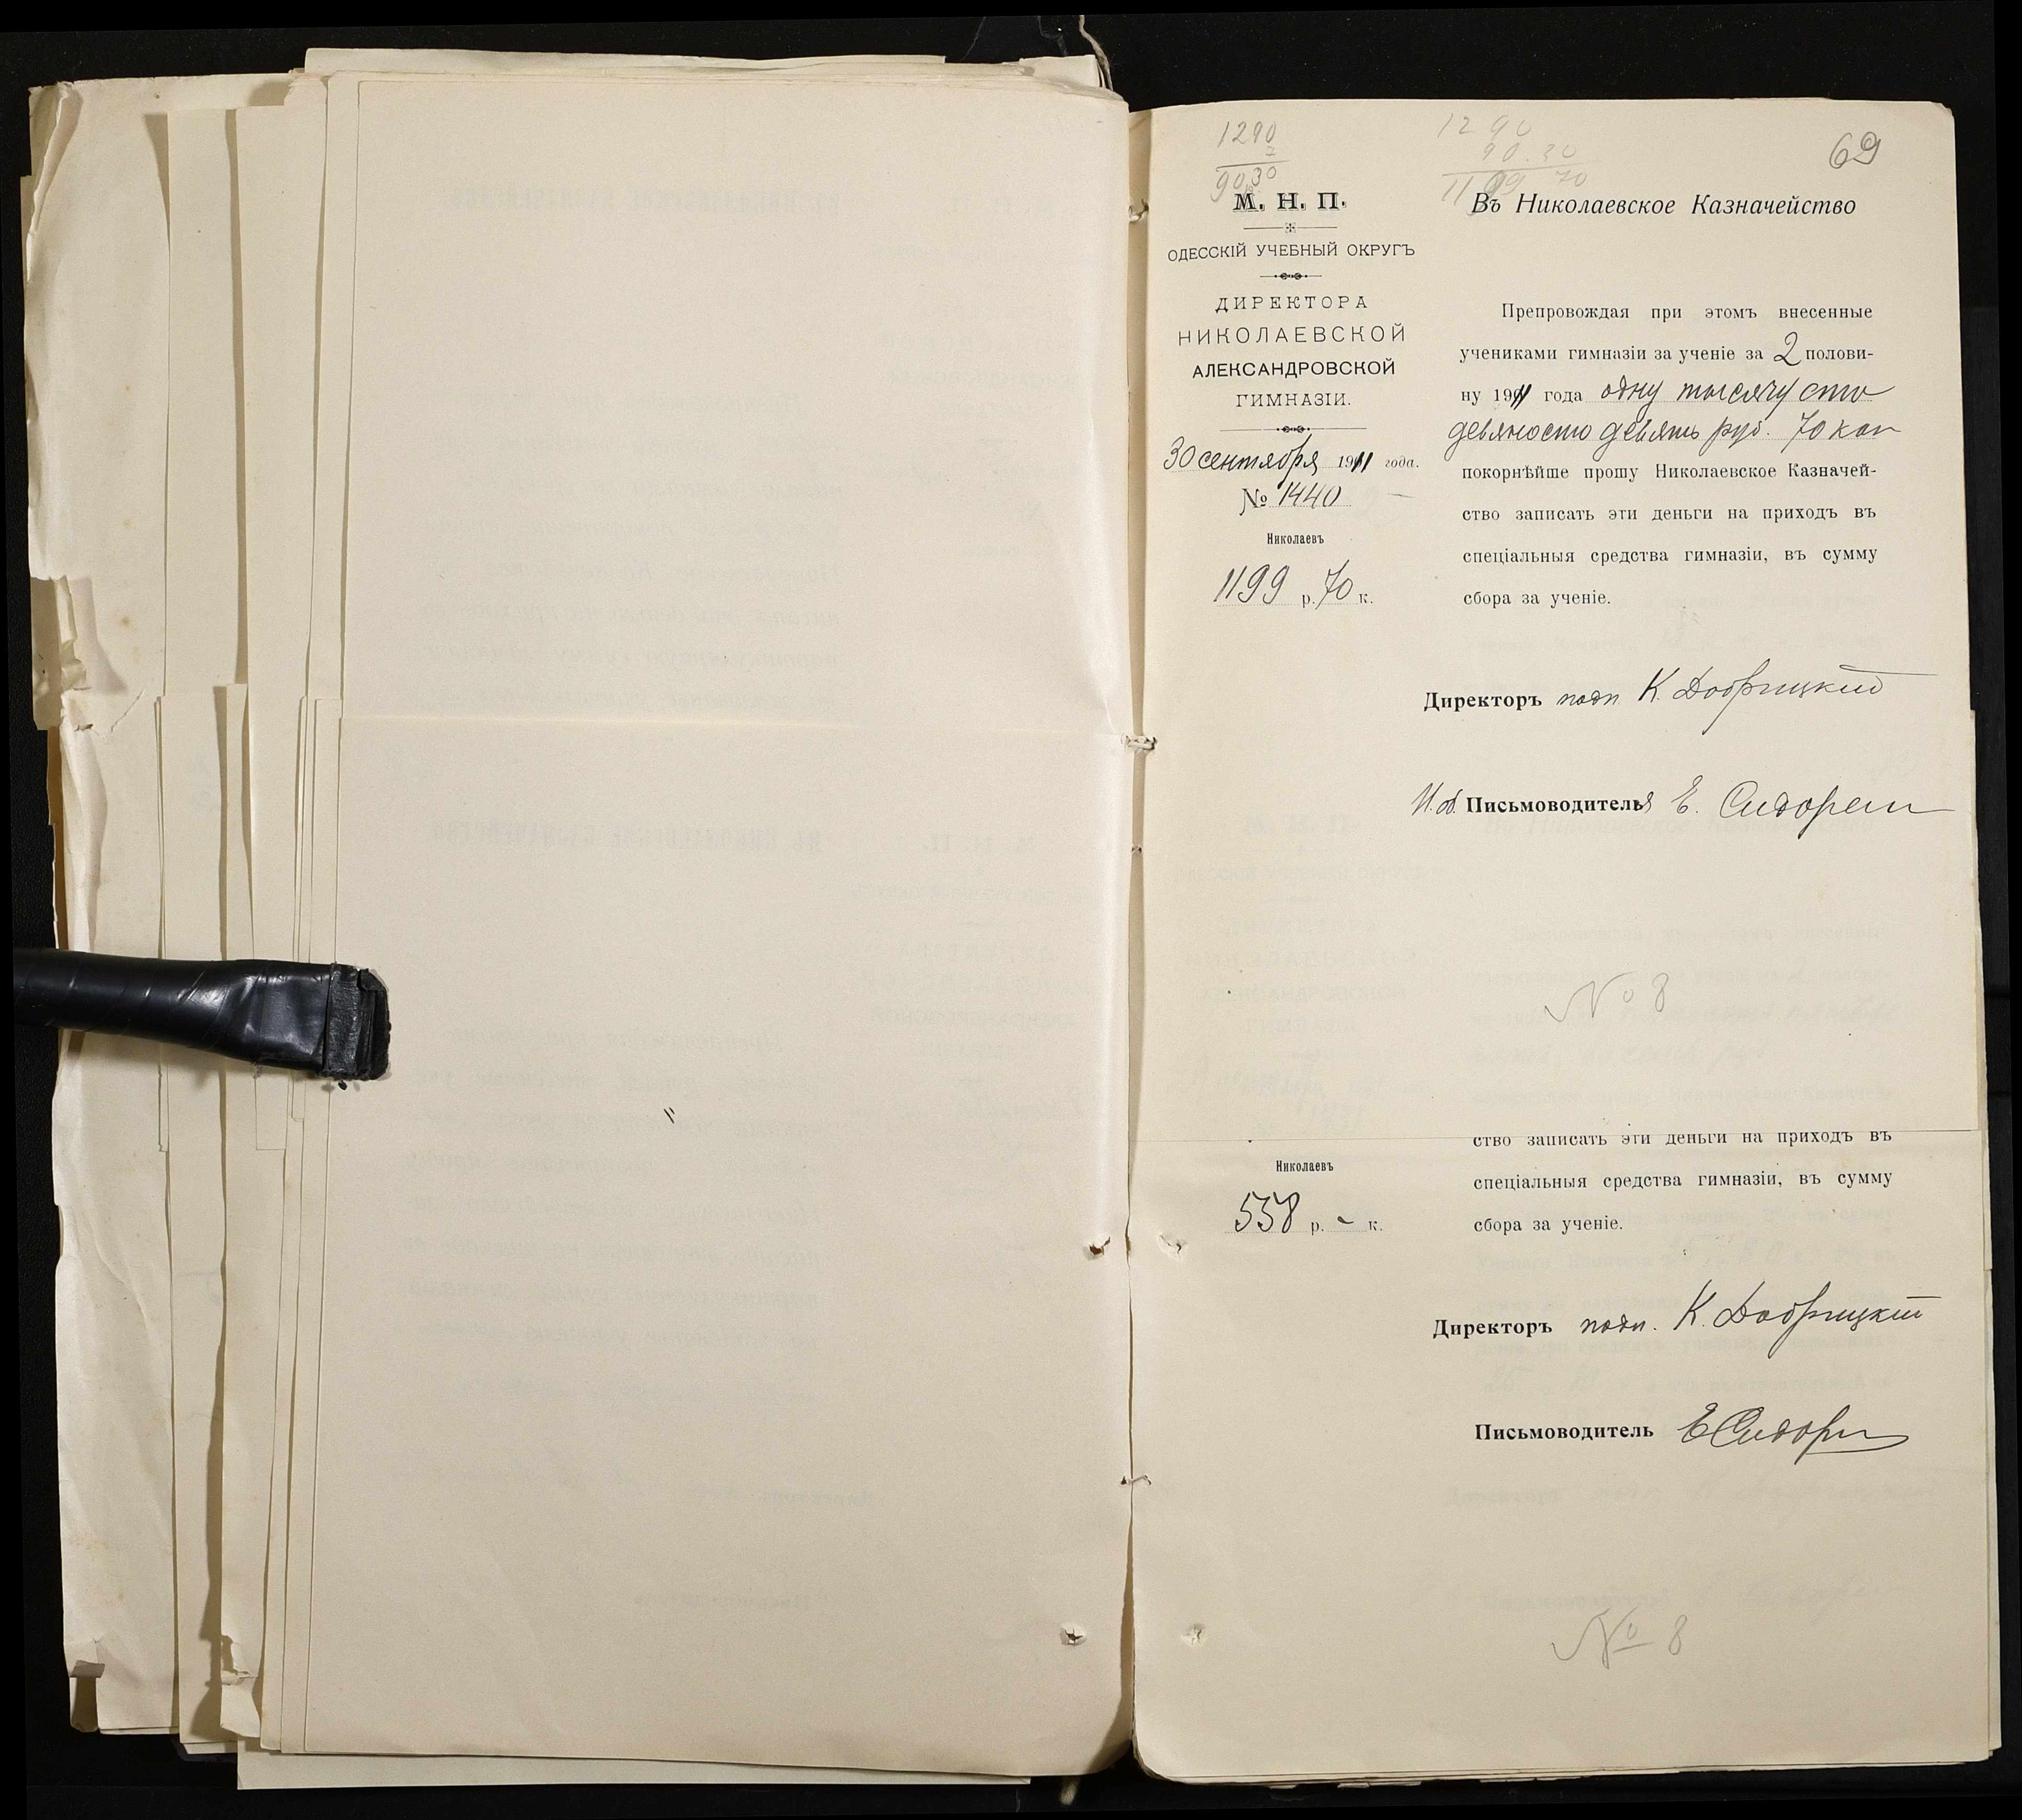 1290
7
90,30
1290
90.30
1199 70
69
М. Н. П.
ОДЕССКІЙ УЧЕБНЫЙ ОКРУГЪ
ДИРЕКТОРА
НИКОЛАЕВСКОЙ
АЛЕКСАНДРОВСКОЙ
ГИМНАЗІИ.
30 сентября 1911 года.
№ 1440
Николаевъ
1199 р. 70 к.
Въ Николаевское Казначейство
Препровождая при этомъ внесенные
учениками гимназіи за ученіе за 2 полови-
ну 1911 года одну тысячу сто
девяносто девять руб. 70 коп
покорнѣйше прошу Николаевское Казначей-
ство записать эти деньги на приходъ въ
спеціальныя средства гимназіи, въ сумму
сбора за ученіе.
Директоръ подп К. Добрицкій
И. об. Письмоводителя Е. Сидорен
№ 8
ство записать эти деньги на приходъ въ
Николаевъ
спеціальныя средства гимназіи, въ сумму
558 р. - к.
сбора за ученіе.
Директоръ подп. К. Добрицкій
Письмоводитель Е Сидорен
№ 8